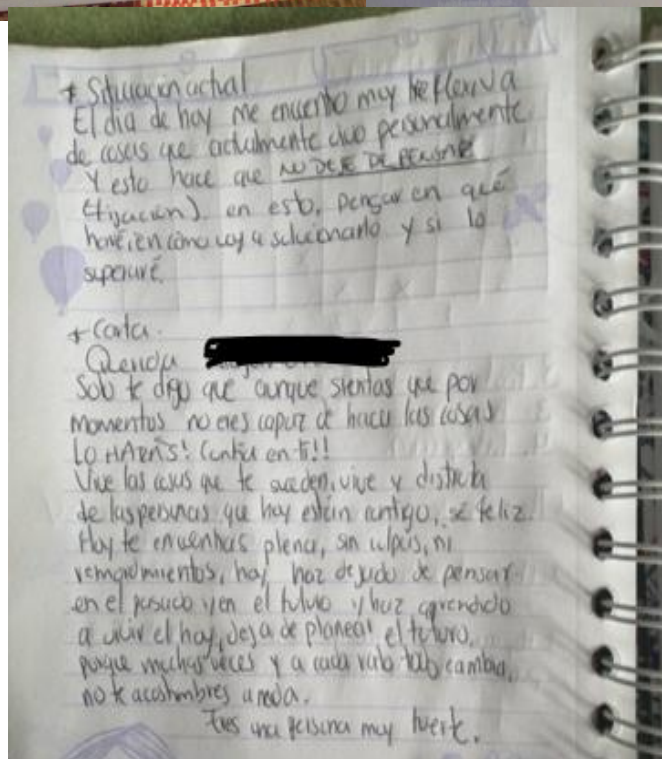 * Situación actual
El dia de hoy me encuentro muy Reflexiva
de cosas que actualmente vivo personalmente
Y esto hace que NO DEJE DE PENSAR
(fijación) en esto, pensar en qué
haré, en cómo voy a solucionarlo y si lo
superaré.
* Carta.
Querida
Solo te digo que aunque sientas que por
momentos no eres capaz de hacer las cosas
LO HARÁS! Confía en ti!!
Vive las cosas que te suceden, vive y disfruta
de las personas que hoy están contigo, sé feliz.
Hoy te encuentras plena, sin culpas, ni
remordimientos, hoy haz dejado de pensar
en el pasado y en el futuro y haz aprendido
a vivir el hoy, deja de planear el futuro,
porque muchas veces y a cada rato todo cambia,
no te acostumbres a nada.
Eres una persona muy fuerte.